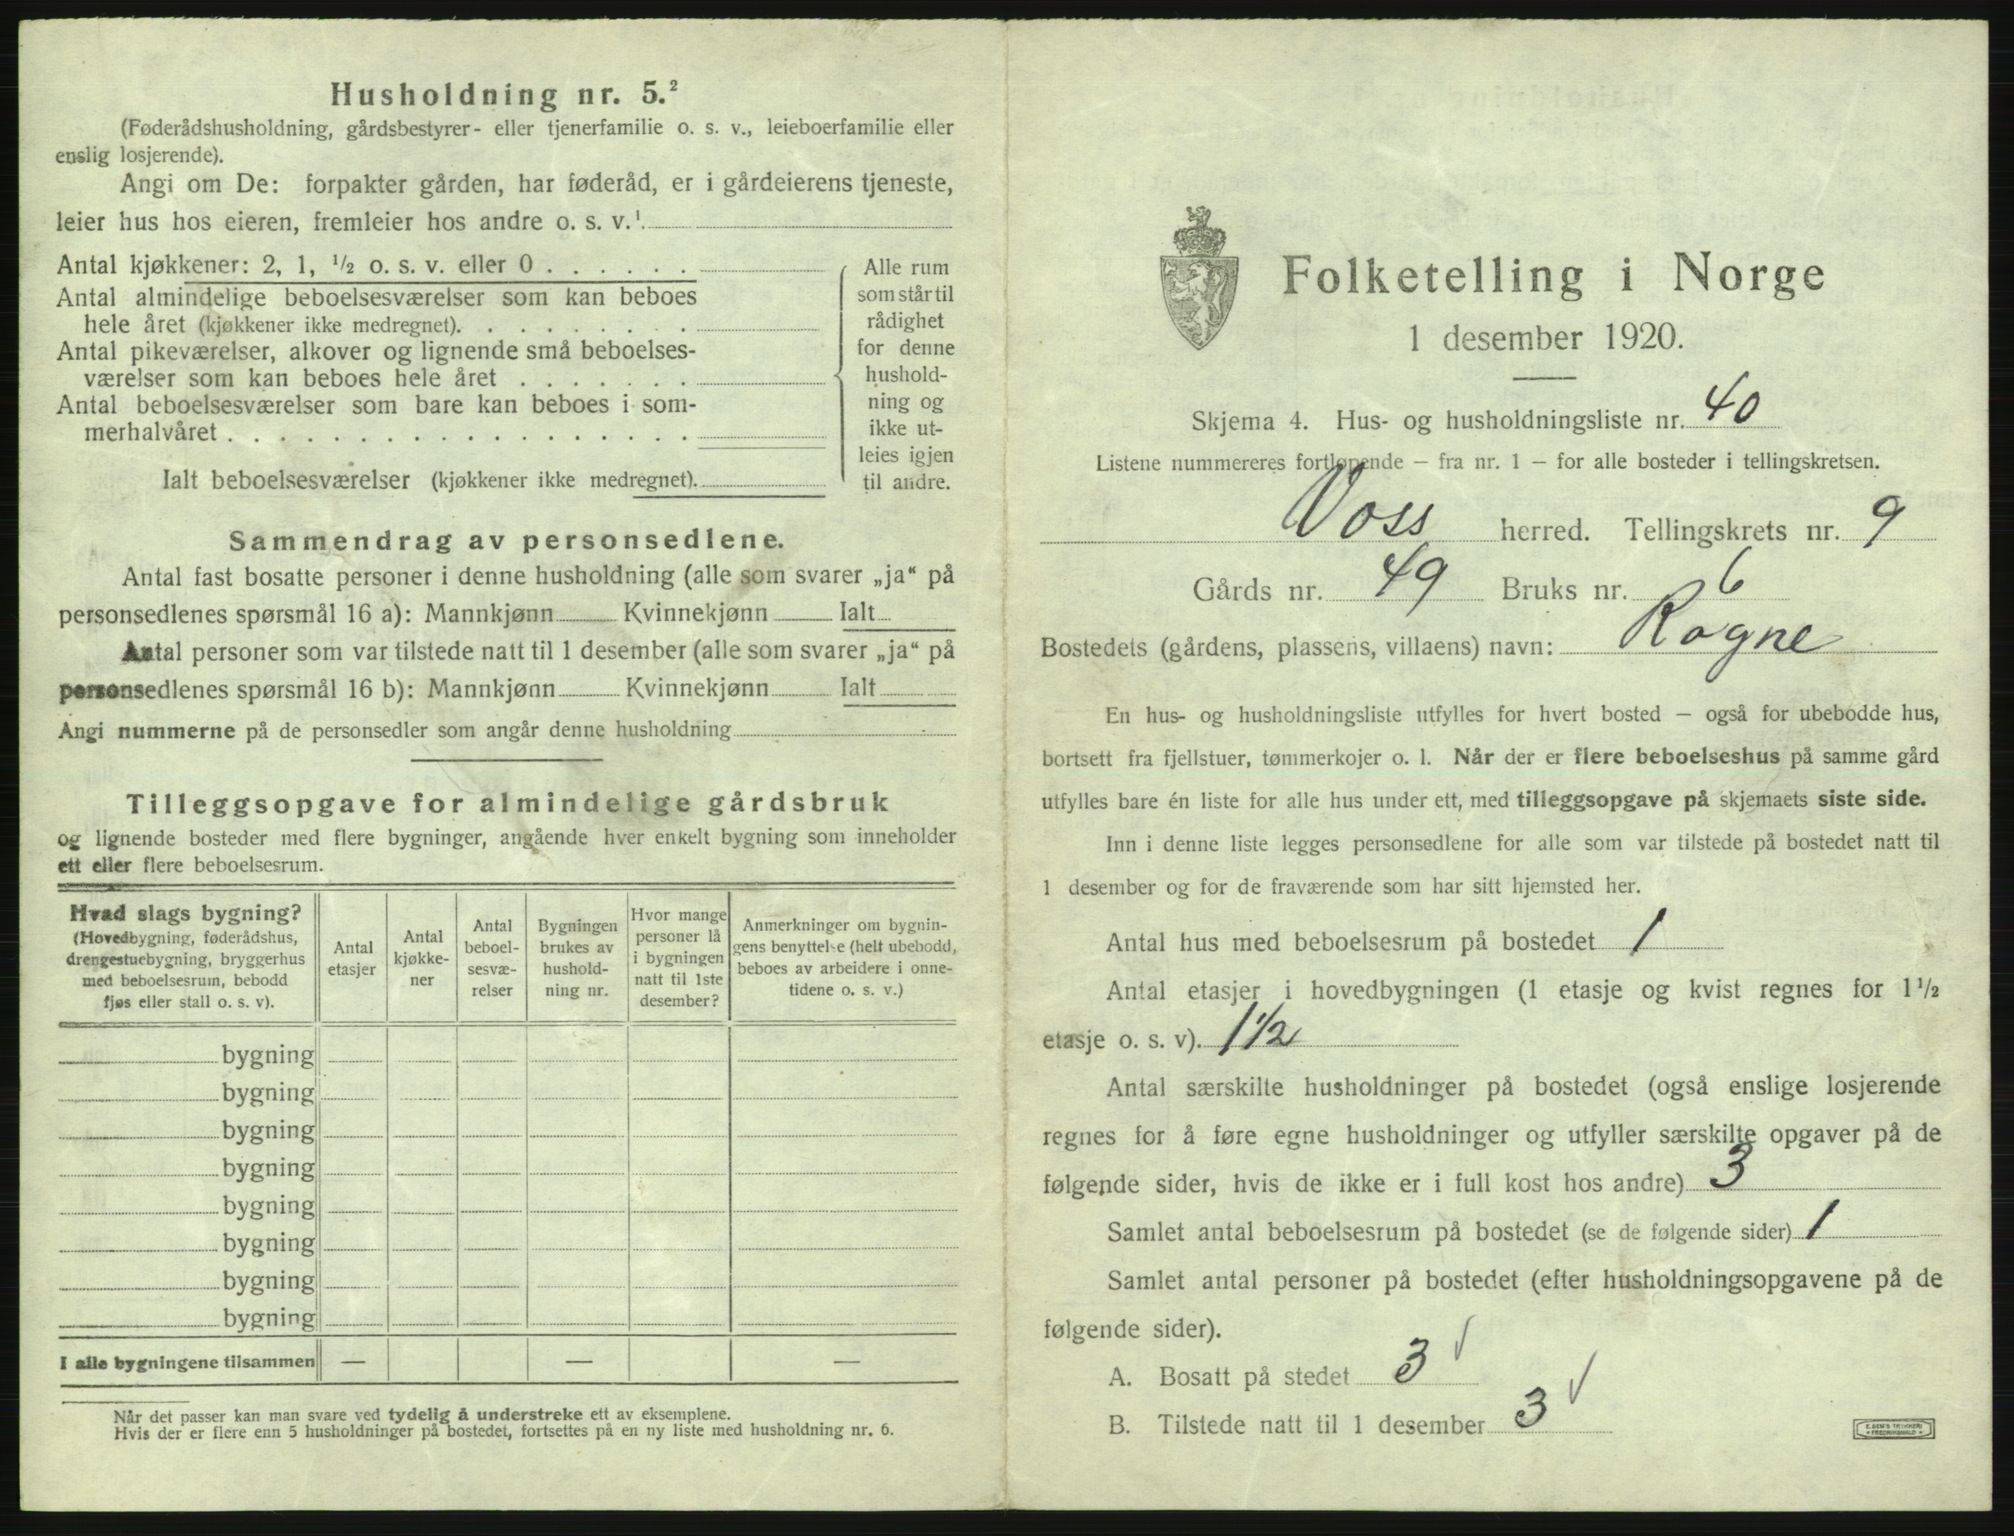 Husholdning nr. 5.²
(Føderådshusholdning, gårdsbestyrer- eller tjenerfamilie o. s. v., leieboerfamilie eller
enslig losjerende).
Angi om De: forpakter gården, har føderåd, er i gårdeierens tjeneste,
leier hus hos eieren, fremleier hos andre o. s. v.¹
Antal kjøkkener: 2, 1, ½ o. s. v. eller 0 . . . . . .
Antal almindelige beboelsesværelser som kan beboes
hele året (kjøkkener ikke medregnet). . . . . . . . .
Antal pikeværelser, alkover og lignende små beboelses-
værelser som kan beboes hele året . . . . . . .
Antal beboelsesværelser som bare kan beboes i som-
merhalvåret . . . . . . . . . . . . . . . . . .
Alle rum
som står til
rådighet
for denne
hushold-
ning og
ikke ut-
leies igjen
til andre.
Ialt beboelsesværelser (kjøkkener ikke medregnet).
Sammendrag av personsedlene.
Antal fast bosatte personer i denne husholdning (alle som svarer „ja“ på
personsedlenes spørsmål 16 a): Mannkjønn Kvinnekjønn Ialt
Antal personer som var tilstede natt til 1 desember (alle som svarer „ja“ på
personsedlenes spørsmål 16 b): Mannkjønn Kvinnekjønn Ialt
Angi nummerne på de personsedler som angår denne husholdning
Tilleggsopgave for almindelige gårdsbruk
og lignende bosteder med flere bygninger, angående hver enkelt bygning som inneholder
ett eller flere beboelsesrum.
Hvad slags bygning?
(Hovedbygning, føderådshus,
drengestuebygning, bryggerhus
med beboelsesrum, bebodd
fjøs eller stall o. s. v).
Antal
etasjer
Antal
kjøkke-
ner
Antal
beboel-
sesvæ-
relser
Bygningen
brukes av
hushold-
ning nr.
Hvor mange
personer lå
i bygningen
natt til 1ste
desember?
Anmerkninger om bygnin-
gens benyttelse (helt ubebodd,
beboes av arbeidere i onne-
tidene o. s. v.)
bygning
bygning
bygning
bygning
bygning
bygning
bygning
bygning
I alle bygningene tilsammen — — —
Når det passer kan man svare ved tydelig å understreke ett av eksemplene.
Hvis der er flere enn 5 husholdninger på bostedet, fortsettes på en ny liste med husholdning nr. 6.
Folketelling i Norge
1 desember 1920.
Skjema 4. Hus- og husholdningsliste nr. 40
Listene nummereres fortløpende – fra nr. 1 – for alle bosteder i tellingskretsen.
Voss herred. Tellingskrets nr. 9
Gårds nr. 49 Bruks nr. 6
Bostedets (gårdens, plassens, villaens) navn: Rogne
En hus- og husholdningsliste utfylles for hvert bosted – også for ubebodde hus,
bortsett fra fjellstuer, tømmerkojer o. l. Når der er flere beboelseshus på samme gård
utfylles bare én liste for alle hus under ett, med tilleggsopgave på skjemaets siste side.
Inn i denne liste legges personsedlene for alle som var tilstede på bostedet natt til
1 desember og for de fraværende som har sitt hjemsted her.
Antal hus med beboelsesrum på bostedet 1
Antal etasjer i hovedbygningen (1 etasje og kvist regnes for 1½
etasje o. s. v). 1½
Antal særskilte husholdninger på bostedet (også enslige losjerende
regnes for å føre egne husholdninger og utfyller særskilte opgaver på de
følgende sider, hvis de ikke er i full kost hos andre) 3
Samlet antal beboelsesrum på bostedet (se de følgende sider) 1
Samlet antal personer på bostedet (efter husholdningsopgavene på de
følgende sider).
A. Bosatt på stedet 3 √
B. Tilstede natt til 1 desember 3 √